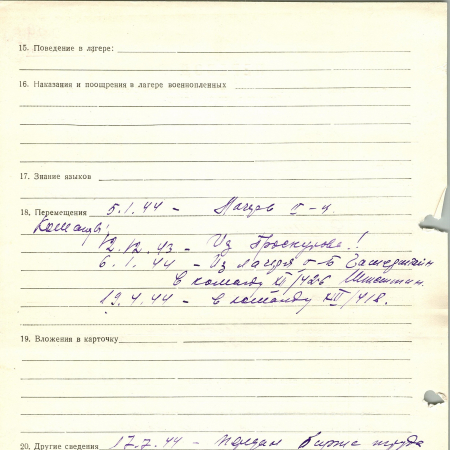 15. Поведение в лагере:
16. Наказания и поощрения в лагере военнопленных
17. Знание языков
18. Перемещения 5.1.44 -
Команды:
12.12.43 - Из Проскурова!
6.1.44 - Из лагеря
в команду XII/426
19.4.44 - в команду XII/418.
19. Вложения в карточку
20. Другие сведения 17.7.44 - передан бирже труда